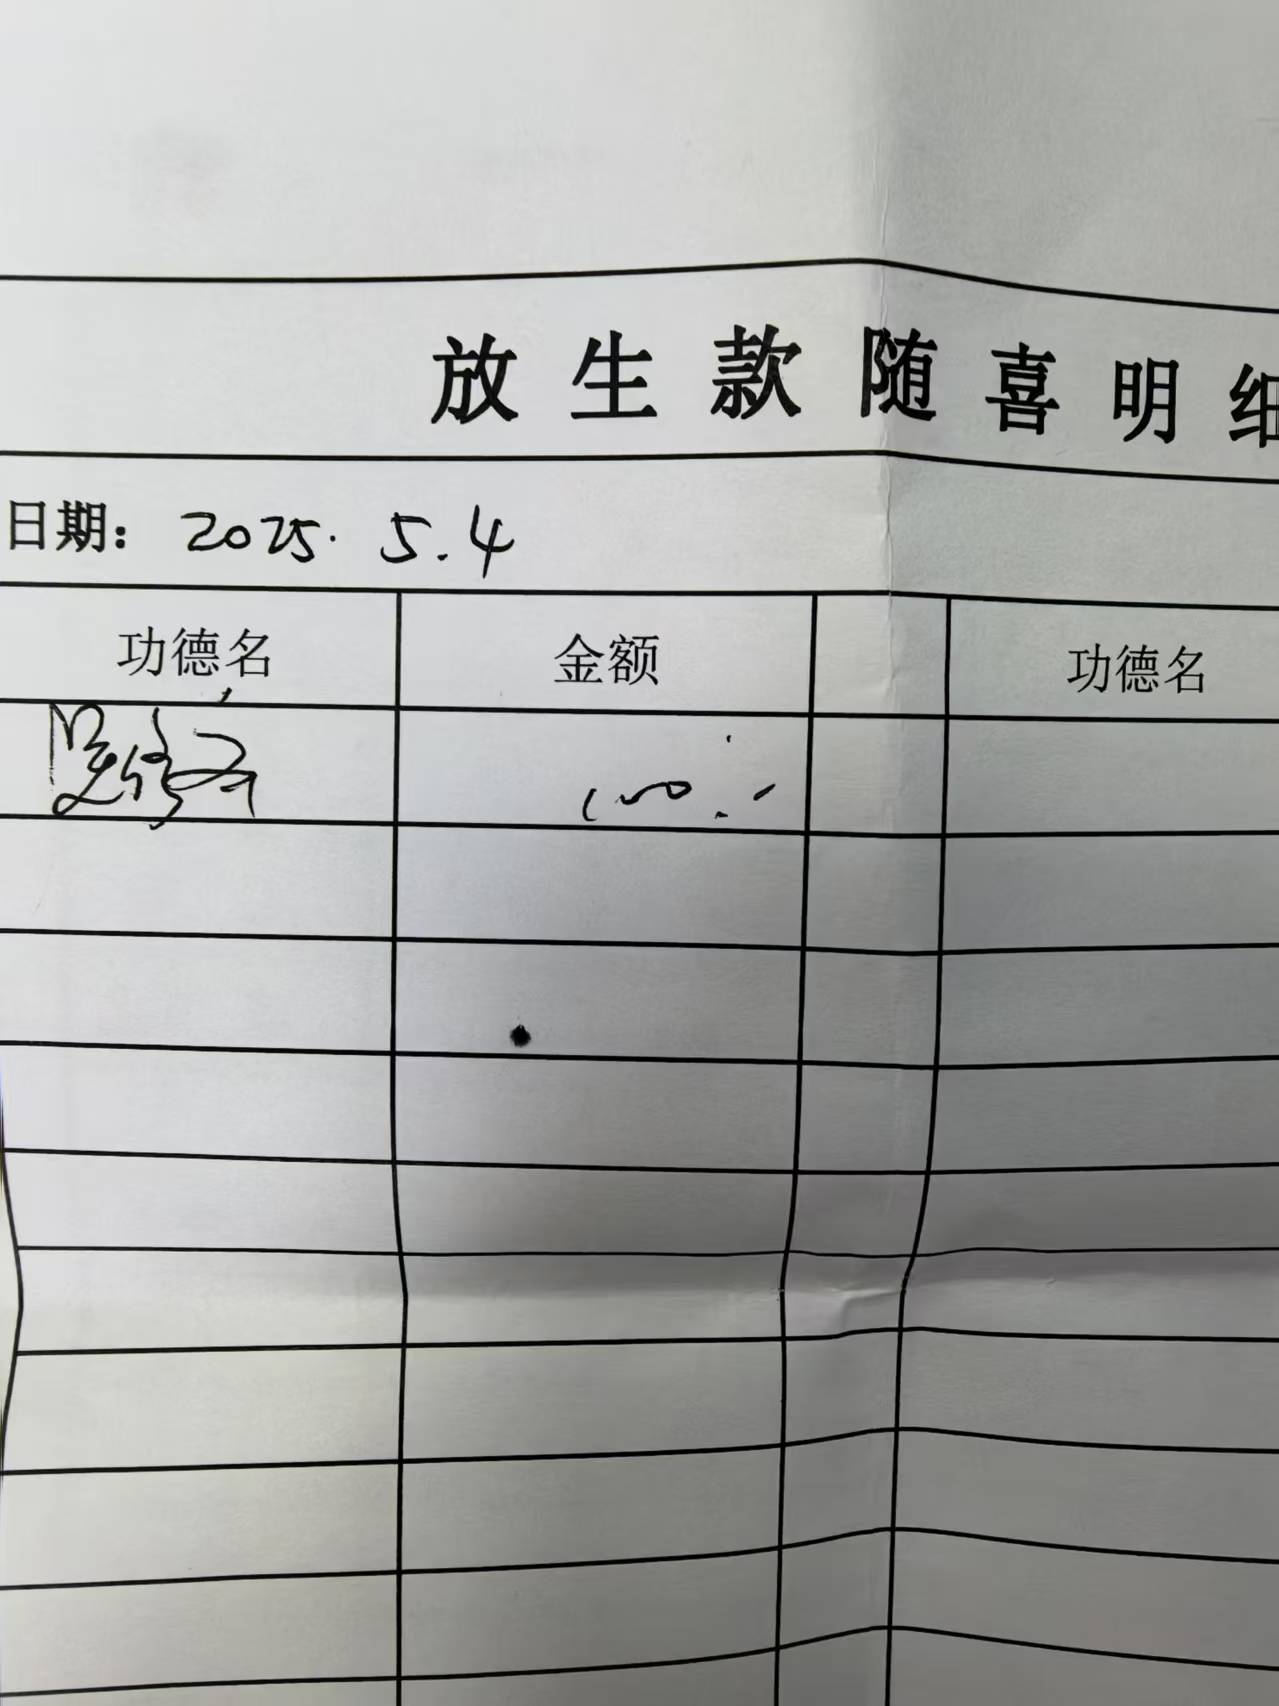 放生款随喜明细
日期：2025.5.4
功德名 金额 功德名
100.-